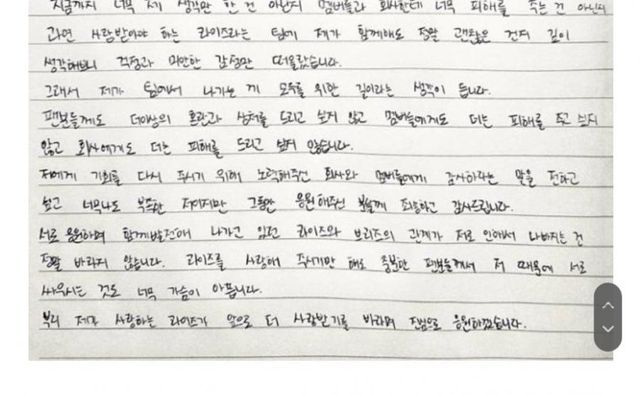 지금까지 너무 제 생각만 한 건 아닌지 멤버들과 회사한테 너무 피해를 주는 건 아닌지
과연 사랑받아야 하는 라이즈라는 팀에 제가 함께해도 정말 괜찮은 건지 깊이
생각해보니 걱정과 미안한 감정만 떠올랐습니다.
그래서 제가 팀에서 나가는 게 모두를 위한 길이라는 생각이 듭니다.
팬분들께도 더이상의 혼란과 상처를 드리고 싶지 않고 멤버들에게도 더는 피해를 주고 싶지
않고 회사에게도 더는 피해를 드리고 싶지 않습니다.
저에게 기회를 다시 주시기 위해 노력해주신 회사와 멤버들에게 감사하다는 말을 전하고
싶고 너무나도 부족한 저이지만 그동안 응원해주신 분들께 죄송하고 감사드립니다.
서로 응원하며 함께발전해 나가고 있던 라이즈와 브리즈의 관계가 저로 인해서 나빠지는 건
정말 바라지 않습니다. 라이즈를 사랑해 주시기만 해도 충분한 팬분들께서 저 때문에 서로
싸우시는 것도 너무 가슴이 아픕니다.
부디 제가 사랑하는 라이즈가 앞으로 더 사랑받기를 바라며 진심으로 응원하겠습니다.